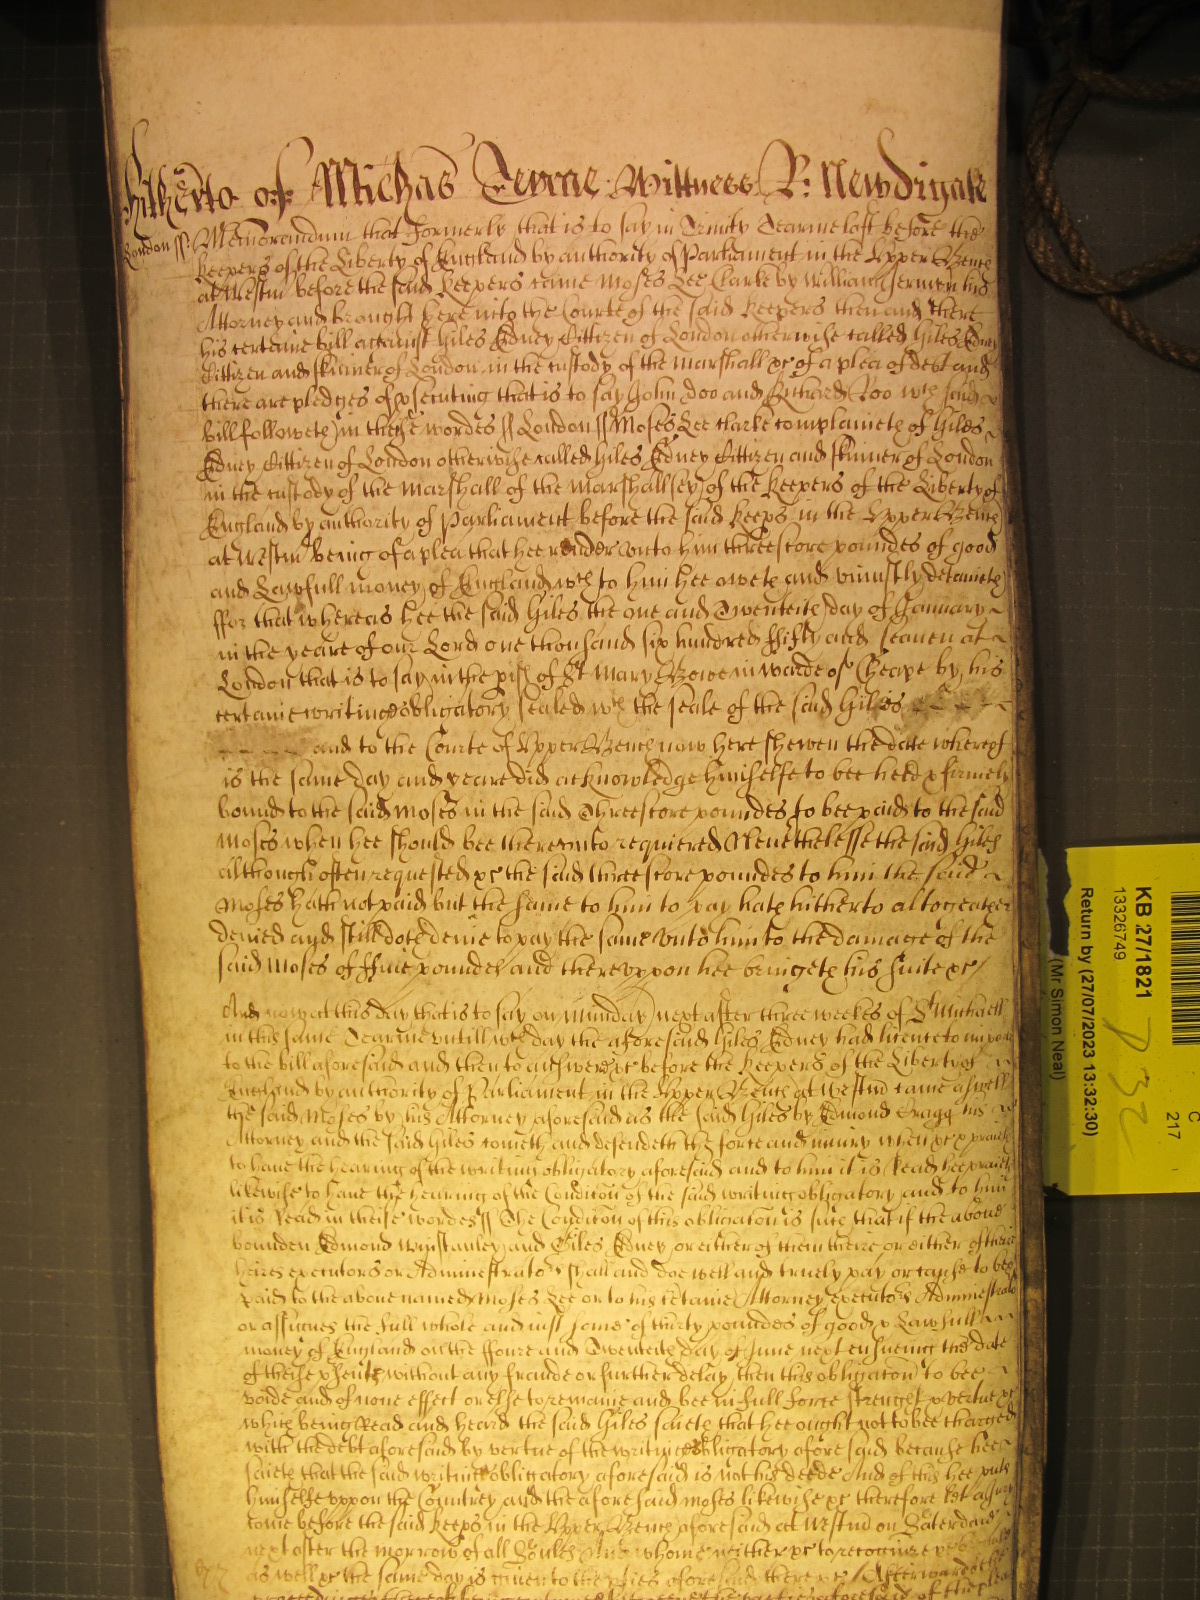 Hitherto of Michas Terme Wittness R: Newdigate
London ss Memorandum that formerly that is to say in Trinity Tearme last before the
Keepers of the Liberty of England by authority of Parliament in the Upper Bench
at Westm before the said Keepers came Moses Lee Clarke by William Jermyn his
Attorney and brought here into the Courte of the said Keepers then and there
his certaine bill against Giles Edney Cittizen of London otherwise called Giles Edney
Cittizen and Skinner of London in the custody of the Marshall &c of a plea of debt and
there are pledges of psecuting that is to say John Doo and Richard Roo wch said
bill followeth in theise wordes ss London ss Moses Lee Clarke complaineth of Giles
Edney Cittizen of London otherwise called Giles Edney Cittizen and Skinner of London
in the custody of the Marshall of the Marshallsey of the Keepers of the Liberty of
England by authority of Parliament before the said Keeps in the Upper Bench
at Westm being of a plea that hee render unto him threescore poundes of good
and Lawfull money of England wch to him hee oweth and uniustly detaineth
ffor that whereas hee the said Giles the one and Twenteith day of January
in the yeare of our Lord one thousand six hundred ffifty and seaven at
London that is to say in the pish of St Mary Bowe in warde of Cheape by his
certaine writing obligatory sealed wth the seale of the said Giles
and to the Courte of Upper Bench now here shewen the date whereof
is the same day and yeare did acknowledge himselfe to bee held & firmely
bound to the said Moses in the said Threescore poundes to bee paid to the said
Moses when hee should bee thereunto requiered Nevethelesse the said Giles
although often requested &c the said threescore poundes to him the said
Moses hath not paid but the same to him to pay hath hitherto altogeather
denied and still doth denie to pay the same unto him to the damage of the
said Moses of ffive poundes and thereuppon hee bringeth his suite &c
And now at this day that is to say on Munday next after three weekes of St Michaell
in this same Tearme untill wch day the aforesaid Giles Edney had licence to imparle
to the bill aforesaid and then to answere &c before the Keepers of the Liberty of
England by authority of Parliament in the Upper Bench at Westm came aswell
the said Moses by his Attorney aforesaid as the said Giles by Edmond Cragg his
Attorney and the said Giles cometh and defendeth the force and iniury when &c & praieth
to have the hearing of the writing obligatory aforesaid and to him it is Read hee praieth
likewise to have the hearing of the Condicon of the said writing obligatory and to him
it is Read in theise wordes ss The Condicon of this obligacon is such that if the above
bounden Edmond Winstanley and Giles Edney or either of them theire or either of their
heires executors or Administrators shall and doe well and truely pay or cause to bee
paid to the above named Moses Lee or to his certaine Attorney executors Administrators
or assignes the full whole and iust some of thirty poundes of good & Lawfull
money of England on the ffoure and Twenteith day of June next ensueing the date
of theise psents without any fraude or further delay then this obligacon to bee
voide and of none effect or else to remaine and bee in full force strenght & vertue &c
which being Read and heard the said Giles saieth that hee ought not to bee charged
with the debt aforesaid by vertue of the writing obligatory aforesaid because hee
saieth that the said writing obligatory aforesaid is not his deede And of this hee puts
himselfe uppon the Countrey and the aforesaid Moses likewise &c therefore let a Jury
come before the said Keeps in the Upper Bench aforesaid at Westm on Saterday
next after the morrow of all Soules And whome neither &c to recognize &c
as well &c the same day is given to the pties aforesaid there &c Afterwards the
KB 27/1821
13326749
Return by (27/07/2023 13:32:30)
(Mr Simon Neal)
217